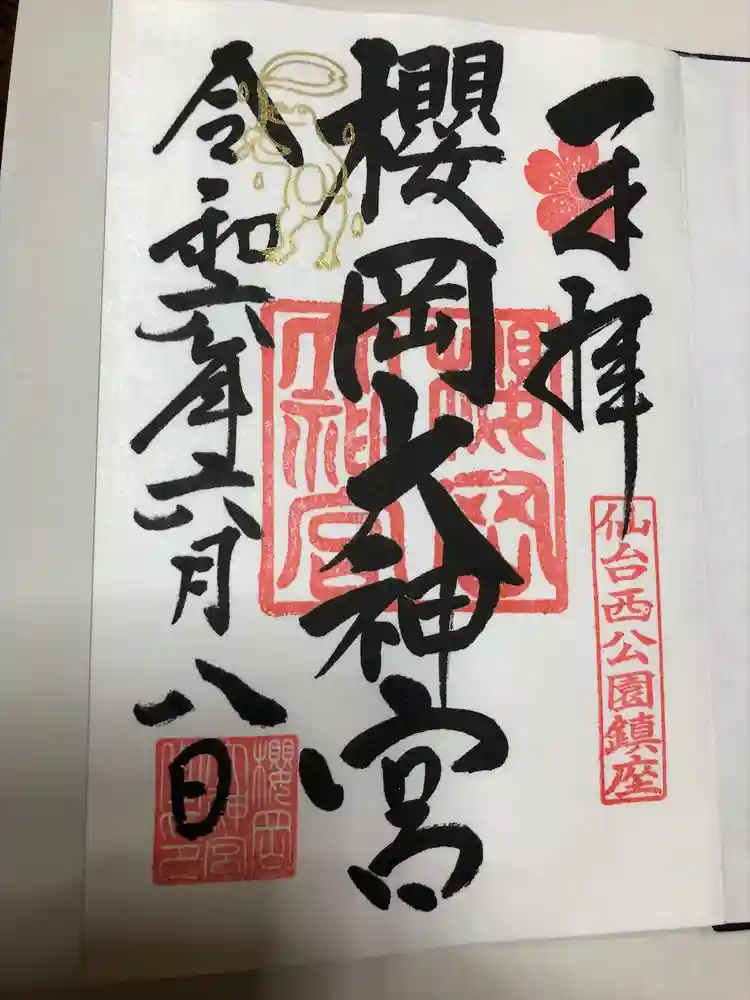 奉拝
仙台西公園鎮座
櫻岡大神宮
櫻岡大神宮
令和六年六月八日
櫻岡
大神宮